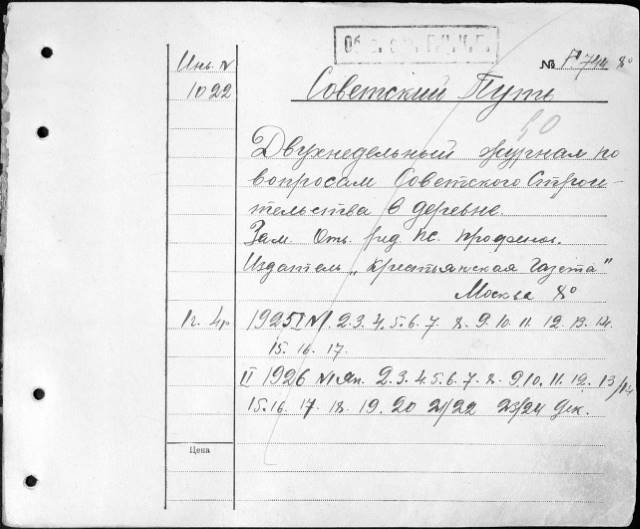 Инв. N
1022
№ 8°
Советский Путь
Двухнедельный журнал по
вопросам Советского Строи-
тельства в деревне.
Зам. Отв. ред.
Издатель „Крестьянская Газета"
Москва 8°
1925 I N1. 2. 3. 4. 5. 6. 7. 8. 9. 10. 11. 12. 13. 14.
15. 16. 17.
II 1926 N1 Ян. 2. 3. 4. 5. 6. 7. 8. 9. 10. 11. 12. 13/14
15. 16. 17. 18. 19. 20 21/22 23/24 Дек.
Цена